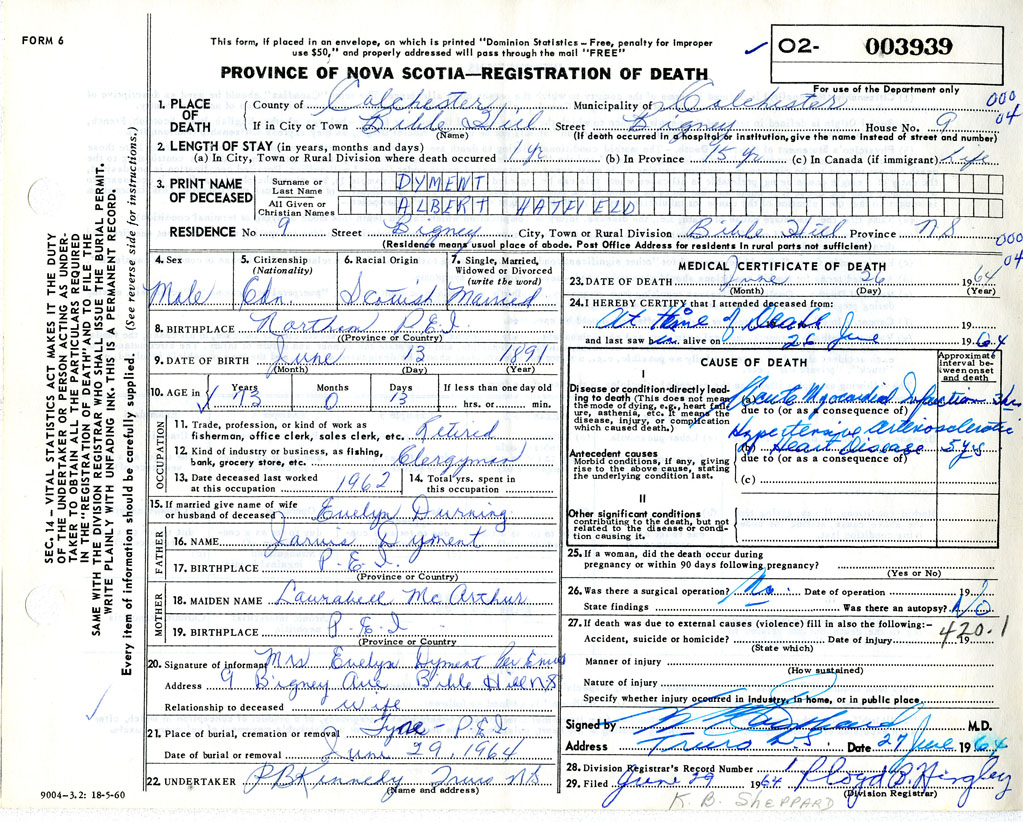 FORM 6
This form, if placed in an envelope, on which is printed "Dominion Statistics – Free, penalty for improper
use $50," and properly addressed will pass through the mail "FREE"
02- 003939
For use of the Department only
PROVINCE OF NOVA SCOTIA—REGISTRATION OF DEATH
000
04
SEC. 14 – VITAL STATISTICS ACT MAKES IT THE DUTY
OF THE UNDERTAKER OR PERSON ACTING AS UNDER-
TAKER TO OBTAIN ALL THE PARTICULARS REQUIRED
IN THE "REGISTRATION OF DEATH" AND TO FILE THE
SAME WITH THE DIVISION REGISTRAR WHO SHALL ISSUE THE BURIAL PERMIT.
WRITE PLAINLY WITH UNFADING INK. THIS IS A PERMANENT RECORD.
Every item of information should be carefully supplied. (See reverse side for instructions.)
1. PLACE OF DEATH
County of Colchester Municipality of Colchester
If in City or Town Bible Hill Street Bigney House No. 9
(Name) (If death occurred in a hospital or institution, give the name instead of street and number)
2. LENGTH OF STAY (in years, months and days)
(a) In City, Town or Rural Division where death occurred 1 yr (b) In Province 15 yr (c) In Canada (if immigrant) Life
3. PRINT NAME OF DECEASED
Surname or Last Name DYMENT
All Given or Christian Names ALBERT HATFIELD
RESIDENCE No 9 Street Bigney City, Town or Rural Division Bible Hill Province N S
(Residence means usual place of abode. Post Office Address for residents in rural parts not sufficient)
000
04
4. Sex Male
5. Citizenship (Nationality) Cdn.
6. Racial Origin Scottish
7. Single, Married, Widowed or Divorced (write the word) Married
8. BIRTHPLACE Northam P.E.I
(Province or Country)
9. DATE OF BIRTH June 13 1891
(Month) (Day) (Year)
10. AGE in Years 73 Months 0 Days 13 If less than one day old hrs. or min.
OCCUPATION
11. Trade, profession, or kind of work as
fisherman, office clerk, sales clerk, etc. Retired
12. Kind of industry or business, as fishing,
bank, grocery store, etc. Clergyman
13. Date deceased last worked
at this occupation 1962
14. Total yrs. spent in
this occupation
15. If married give name of wife
or husband of deceased Evelyn Durning
FATHER
16. NAME Jarvis Dyment
17. BIRTHPLACE P.E.I
(Province or Country)
MOTHER
18. MAIDEN NAME Laurabell McArthur
19. BIRTHPLACE P.E.I
(Province or Country)
20. Signature of informant Mrs Evelyn Dyment Per
Address 9 Bigney Ave Bible Hill NS
Relationship to deceased wife
21. Place of burial, cremation or removal Tyne – P.E.I
Date of burial or removal June 29, 1964
22. UNDERTAKER P B Kennedy Truro N S
(Name and address)
9004-3.2: 18-5-60
MEDICAL CERTIFICATE OF DEATH
23. DATE OF DEATH June 26 1964
(Month) (Day) (Year)
24. I HEREBY CERTIFY that I attended deceased from:
At time of Death 19
and last saw him alive on 26 June 1964
CAUSE OF DEATH
Approximate interval between onset and death
I
Disease or condition directly lead-
ing to death (This does not mean
the mode of dying, e.g., heart fail-
ure, asthenia, etc. It means the
disease, injury, or complication
which caused death.)
(a) Acute Myocardial Infarction
due to (or as a consequence of)
Hypertensive arteriosclerotic
Antecedent causes
Morbid conditions, if any, giving
rise to the above cause, stating
the underlying condition last.
(b) Heart Disease 5 yrs
due to (or as a consequence of)
(c)
II
Other significant conditions
contributing to the death, but not
related to the disease or condi-
tion causing it.
25. If a woman, did the death occur during
pregnancy or within 90 days following pregnancy?
(Yes or No)
26. Was there a surgical operation? No Date of operation 19
State findings Was there an autopsy? NO
27. If death was due to external causes (violence) fill in also the following:–
420.1
Accident, suicide or homicide? Date of injury 19
(State which)
Manner of injury
(How sustained)
Nature of injury
Specify whether injury occurred in Industry, in home, or in public place
Signed by M.D.
Address Truro N.S. Date 27 June 1964
28. Division Registrar's Record Number 1
29. Filed June 29 1964 Lloyd B. Hingley
(Division Registrar)
K. B. SHEPPARD